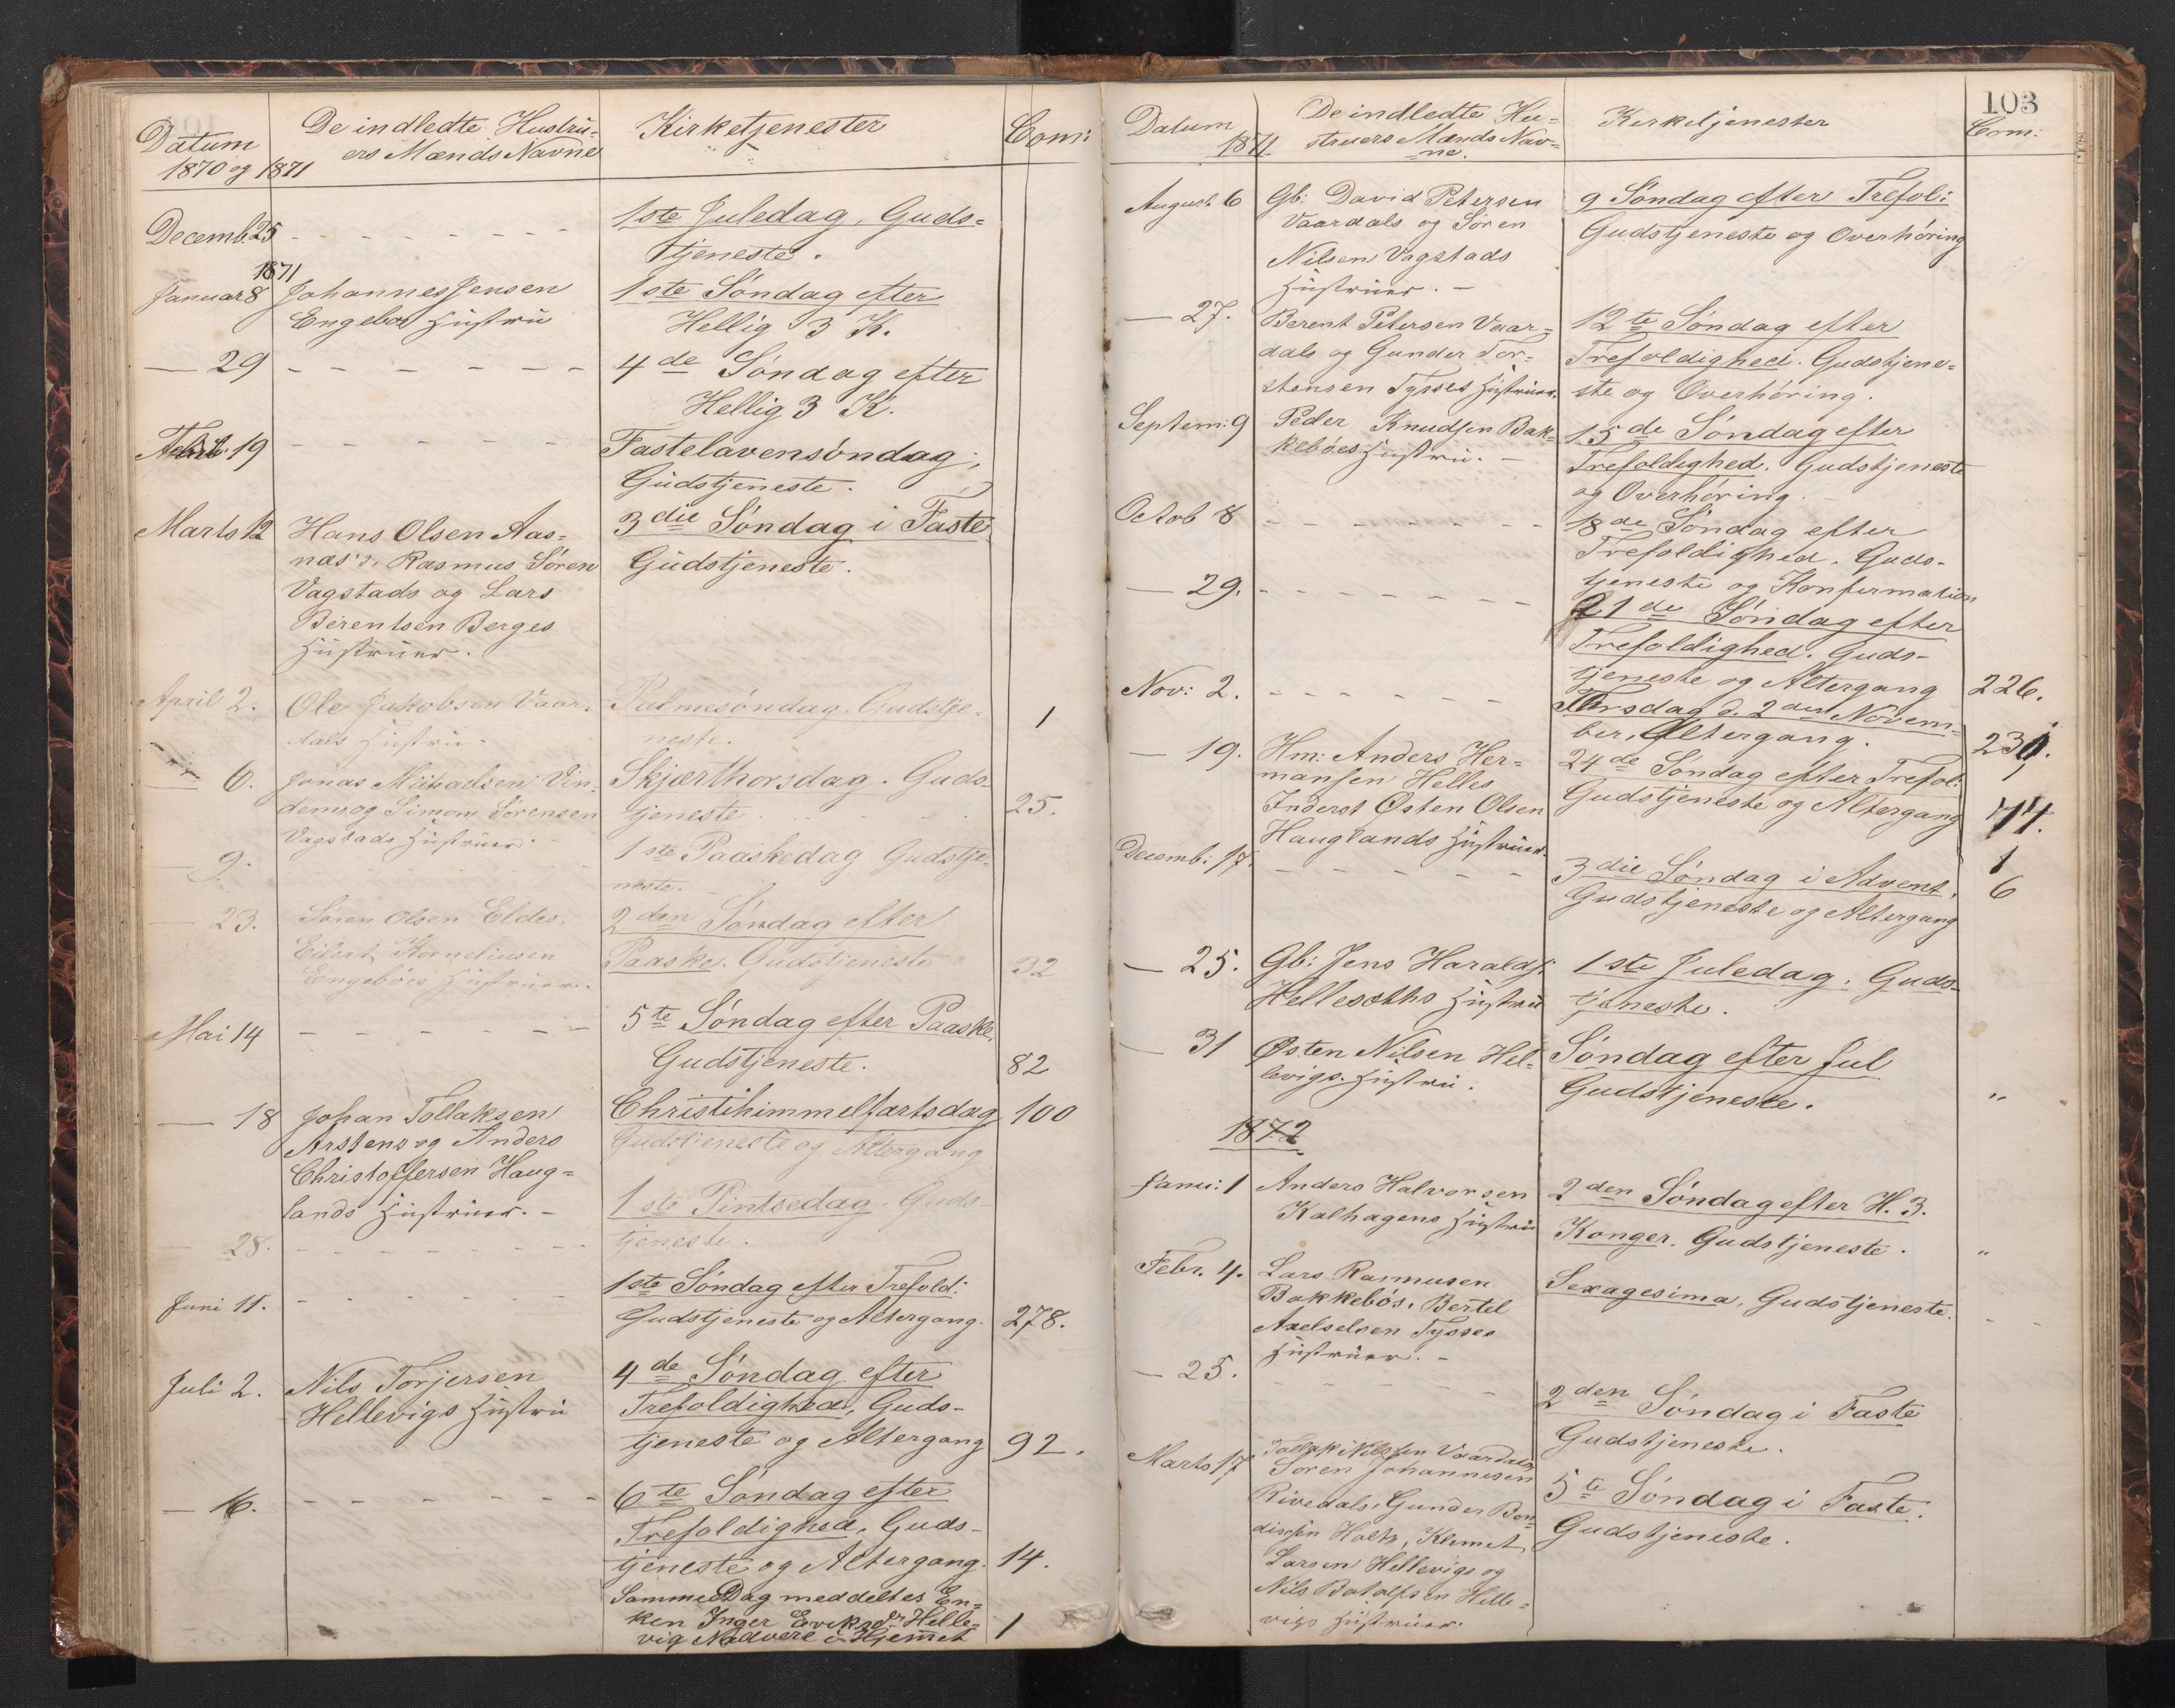 Datum
1870 og 1871
De indledte Hustru-
ers Mænds Navne
Kirketjenester
Com:
Decemb. 25 - - - - - - - -
1ste Juledag, Guds-
tjeneste.
1871
Januar 8 Johannes Jensen
Engebøs Hustru
1ste Søndag efter
Hellig 3 K.
— 29 - - - - - -
4de Søndag efter
Hellig 3 K.
Febr. 19 - - - - - -
Fastelavensøndag,
Gudstjeneste.
Marts 12 Hans Olsen Aas-
næs's, Rasmus Søren
Vagstads og Lars
Berentsen Berges
Hustruer.
3die Søndag i Faste
Gudstjeneste.
April 2. Ole Jakobsen Vaar-
dals Hustru.
Palmesøndag. Gudstje-
neste.
1
— 6. Jonas Michaelsen Vin-
denes og Simon Sørensen
Vagstads Hustruer.
Skjærthorsdag. Guds-
tjeneste
25.
— 9.
1ste Paaskedag. Gudstje-
neste.
— 23. Søren Olsen Eldes,
Eilert Korneliusen
Engebøes Hustruer.
2den Søndag efter
Paaske. Gudstjeneste
32
Mai 14 - - - - - -
5te Søndag efter Paaske.
Gudstjeneste.
82
— 18 Johan Tollaksen
Arstens og Anders
Christoffersen Haug-
lands Hustruer. -
Christihimmelfartsdag
Gudstjeneste og Altergang
100
— 28. - - - - - - - -
1ste Pintsedag. Guds-
tjeneste.
Juni 11. - - - - - -
1ste Søndag efter Trefold:
Gudstjeneste og Altergang.
278.
Juli 2. Nils Torjersen
Hellevigs Hustru
4de Søndag efter
Trefoldighed, Guds-
tjeneste og Altergang
92.
— 16. - - - - - - -
6te Søndag efter
Trefoldighed, Guds-
tjeneste og Altergang.
14.
Samme Dag meddeltes En-
ken Inger Eriksdr Helle-
vig Nadvere i Hjemmet
1
103
Datum
1871
De indledte Hu-
struers Mænds Nav-
ne.
Kirketjenester
Com:
August 6 Gb: David Petersen
Vaardals og Søren
Nilsen Vagstads
Hustruer. -
9 Søndag efter Trefol:
Gudstjeneste og Overhøring
— 27. Berent Petersen Vaar-
dals og Gunder Tor-
stensen Tysses Hustruer.
12te Søndag efter
Trefoldighed. Gudstjene-
ste og Overhøring.
Septem: 9 Peder Knudsen Bak-
kebøes Hustru. -
15de Søndag efter
Trefoldighed. Gudstjeneste
og Overhøring. -
Octob 8 - - - - - - - -
18de Søndag efter
Trefoldighed. Guds-
tjeneste og Konfirmation
— 29. - - - - - - -
21de Søndag efter
Trefoldighed. Guds-
tjeneste og Altergang
226.
Nov: 2. - - - - - -
Torsdag d. 2den Novem-
ber, Altergang.
— 19. Hm: Anders Her-
mansen Helles
Inderst Østen Olsen
Hauglands Hustruer.
24de Søndag efter Trefol:
Gudstjeneste og Altergang
Decemb: 17. - - - - - -
3die Søndag i Advent.
Gudstjeneste og Altergang
1
6
— 25. Gb: Jens Haralds:
Hellesøths Hustru
1ste Juledag. Guds-
tjeneste.
— 31 Østen Nilsen Hel-
levigs. Hustru.
Søndag efter Jul
Gudstjeneste.
"
1872
Janu: 1 Anders Halvorsen
Kalhagens Hustru
2den Søndag efter H. 3.
Konger. Gudstjeneste.
"
Febr. 4. Lars Rasmusen
Bakkebøs, Bertel
Axelselsen Tysses
Hustruer. -
Sexagesima, Gudstjeneste.
- -
— 25. - - - - -
2den Søndag i Faste
Gudstjeneste.
Marts 17 Tollak Nilssen Vaardals
Søren Johannesen
Rivedals, Gunder Ben-
dissen Holts, Klemet
Larsen Hellevigs og
Nils Botolfsen Helle-
vigs Hustruer.
5te Søndag i Faste.
Gudstjeneste.